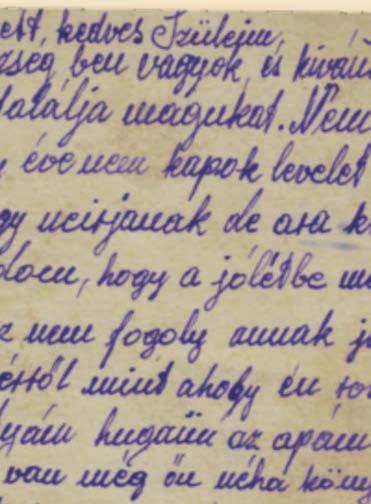 kedves Szüleim,
ben vagyok, és kiván
találja magukat. Nem
éve nem kapok levelet
gy ucirjanak de ara k
dom, hogy a jólétbe m
z nem fogoly annak j
ésről mint ahogy én so
lyám hugaim az apám
van még ön néha köny